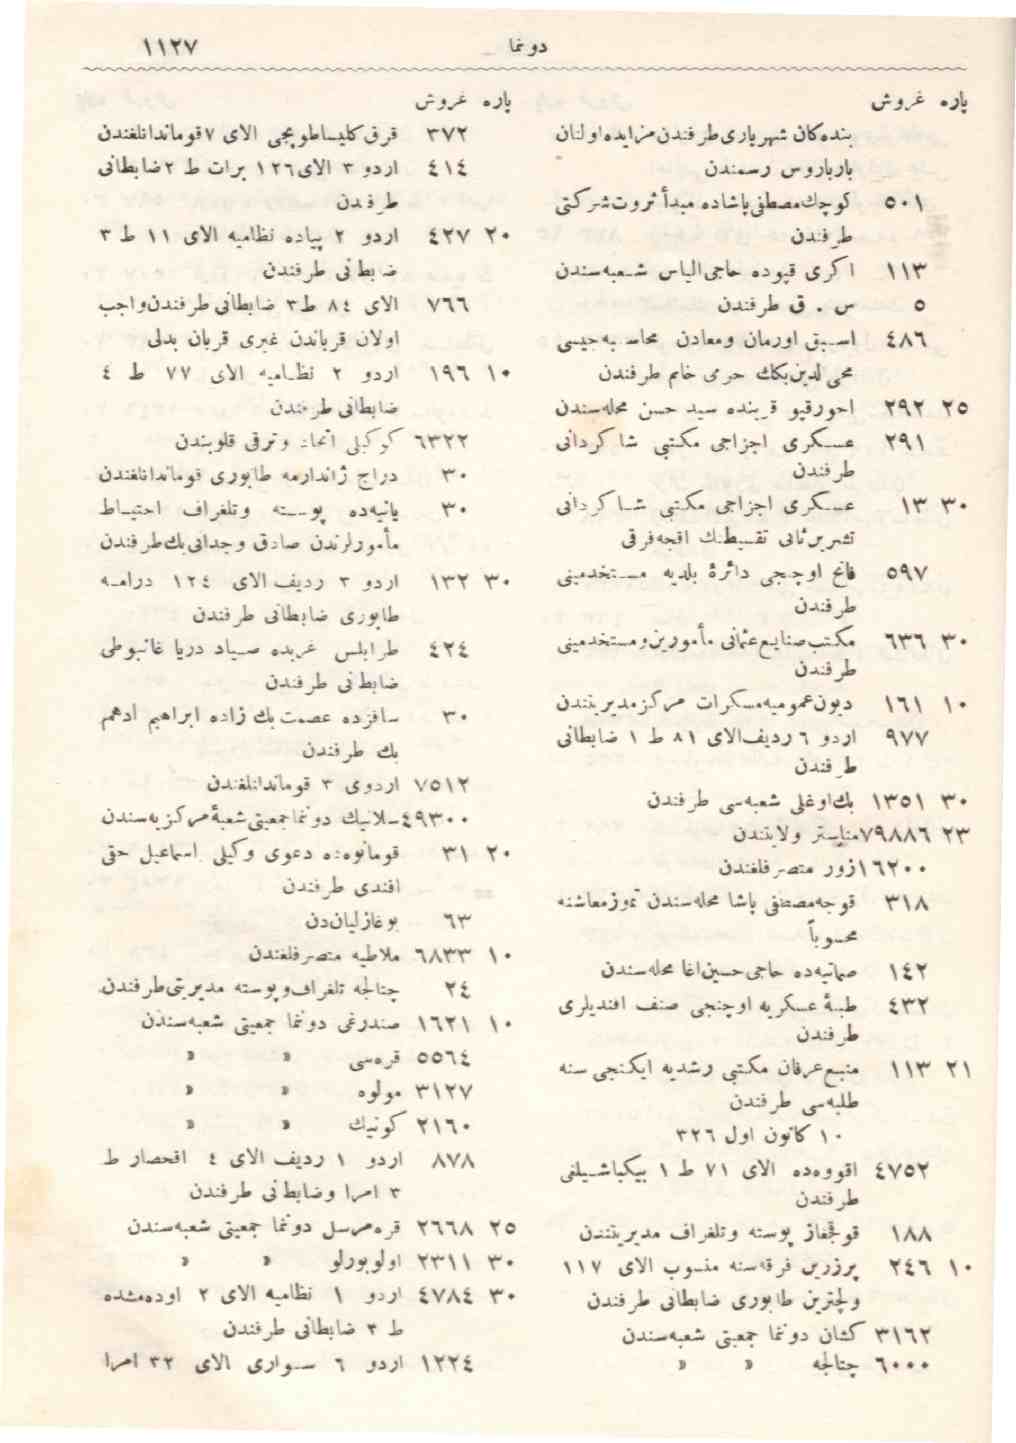 دونما
١١٢٧
پاره غروش
بنده‌كان شهرياری طرفندن مزايده‌ اولنان
بارباروس رسمندن
٥٠١ كوچك مصطفی پاشاده مبدأ ثروت شركتی
طرفندن
١١٣ اكری قپوده حاجی الياس شعبه‌سندن
٥ س . ق طرفندن
٤٨٦ اسبق اورمان ومعادن محاسبه‌جيسی
محی الدين بكك حرمی خانم طرفندن
٢٥ ٢٩٢ اخورقپو قربنده سيد حسن محله‌سندن
٢٩١ عسكری اجزاجی مكتبی شاكردانی
طرفندن
٣٠ ١٣ عسكری اجزاجی مكتبی شاكردانی
تشرين ثانی تقسيطنك اقچه فرقی
٥٩٧ فاتح اوچنجی دائرۀ بلديه مستخدمينی
طرفندن
٣٠ ٦٣٦ مكتب صنايع عثمانی مأمورين ومستخدمينی
طرفندن
١٠ ١٦١ ديون عموميه مسكرات مركز مديريتندن
٩٧٧ اردو ٦ رديف الای ٨١ ط ١ ضابطانی
طرفندن
٣٠ ١٣٥١ بك اوغلی شعبه‌سی طرفندن
٢٣ ٧٩٨٨٦ مناستر ولايتندن
١٦٢٠٠ زور متصرفلغندن
٣١٨ قوجه مصطفی پاشا محله‌سندن تموز معاشنه
محسوباً
١٤٢ صماتيه‌ده حاجی حسين اغا محله‌سندن
٤٣٢ طبيۀ عسكريه اوچنجی صنف افنديلری
طرفندن
٢١ ١١٣ منبع عرفان مكتبی رشديه ايكنجی سنه
طلبه‌سی طرفندن
١٠ كانون اول ٣٢٦
٤٧٥٢ اقووه‌ده الای ٧١ ط ١ بيكباشيلغی
طرفندن
١٨٨ قوجفاز پوسته وتلغراف مديريتندن
١٠ ٢٤٦ پرزرين فرقه‌سنه منسوب الای ١١٧
ولچترين طابوری ضابطانی طرفندن
٣١٦٢ كشان دونما جمعيتی شعبه‌سندن
٦٠٠٠ چتالجه » »
پاره غروش
٣٧٢ قرق كليسا طوپجی الای ٧ قوماندانلغندن
٤١٤ اردو ٣ الای ١٢٦ برات ط ٢ ضابطانی
طرفندن
٢٠ ٤٢٧ اردو ٢ پياده نظاميه الای ١١ ط ٣
ضابطانی طرفندن
٧٦٦ الای ٨٤ ط ٣ ضابطانی طرفندن واجب
اولان قرباندن غيری قربان بدلی
١٠ ١٩٦ اردو ٢ نظاميه الای ٧٧ ط ٤
ضابطانی طرفندن
٦٣٢٢ كوكيلی اتحاد وترقی قلوبندن
٣٠ دراج ژاندارمه طابوری قوماندانلغندن
٣٠ يانيه‌ده پوسته وتلغراف احتياط
مأمورلرندن صادق وجدانی بك طرفندن
٣٠ ١٣٢ اردو ٣ رديف الای ١٢٤ درامه
طابوری ضابطانی طرفندن
٤٢٤ طرابلس غربده صياد دريا غانبوطی
ضابطانی طرفندن
٣٠ ساقزده عصمت بك زاده ابراهيم ادهم
بك طرفندن
٧٥١٢ اردوی ٣ قوماندانلغندن
٤٩٣٠٠ سلانيك دونما جمعيتی شعبۀ مركزيه‌سندن
٢٠ ٣١ قومانوه‌ده دعوی وكيلی اسماعيل حقی
افندی طرفندن
٦٣ بوغازليان‌دن
١٠ ٦٨٣٣ ملاطيه متصرفلغندن
٢٤ چتالجه تلغراف وپوسته مديريتی طرفندن
١٠ ١٦٢١ صندرغی دونما جمعيتی شعبه‌سندن
٥٥٦٤ قره‌سی » »
٣١٢٧ مولوه » »
٢١٦٠ كونيك » »
٨٧٨ اردو ١ رديف الای ٤ اقحصار ط
٣ امرا وضابطانی طرفندن
٢٥ ٢٦٦٨ قره‌مرسل دونما جمعيتی شعبه‌سندن
٣٠ ٢٣١١ اولوبورلو » »
٣٠ ٤٧٨٤ اردو ١ نظاميه الای ٢ اوده‌مشده
ط ٣ ضابطانی طرفندن
١٢٢٤ اردو ٦ سواری الای ٣٢ امرا